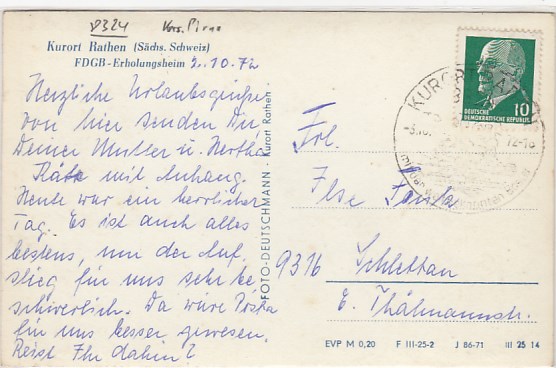 D324 Krs. Pirna
Kurort Rathen (Sächs. Schweiz)
FDGB-Erholungsheim 2.10.72
Herzliche Urlaubsgrüße
von hier senden Dir
Deine Mutter u. Hertha
Käte mit Anhang.
Heute war ein herrlicher
Tag. Es ist auch alles
bestens, nur der Auf-
stieg für uns sehr be-
schwerlich. Da wäre
für uns besser gewesen.
Reist Ihr dahin?
FOTO-DEUTSCHMANN Kurort Rathen
KURORT RATHEN
10
DEUTSCHE
DEMOKRATISCHE REPUBLIK
Frl.
Ilse
9316 Schlettau
E. Thälmannstr.
EVP M 0,20 F III-25-2 J 86-71 III 25 14